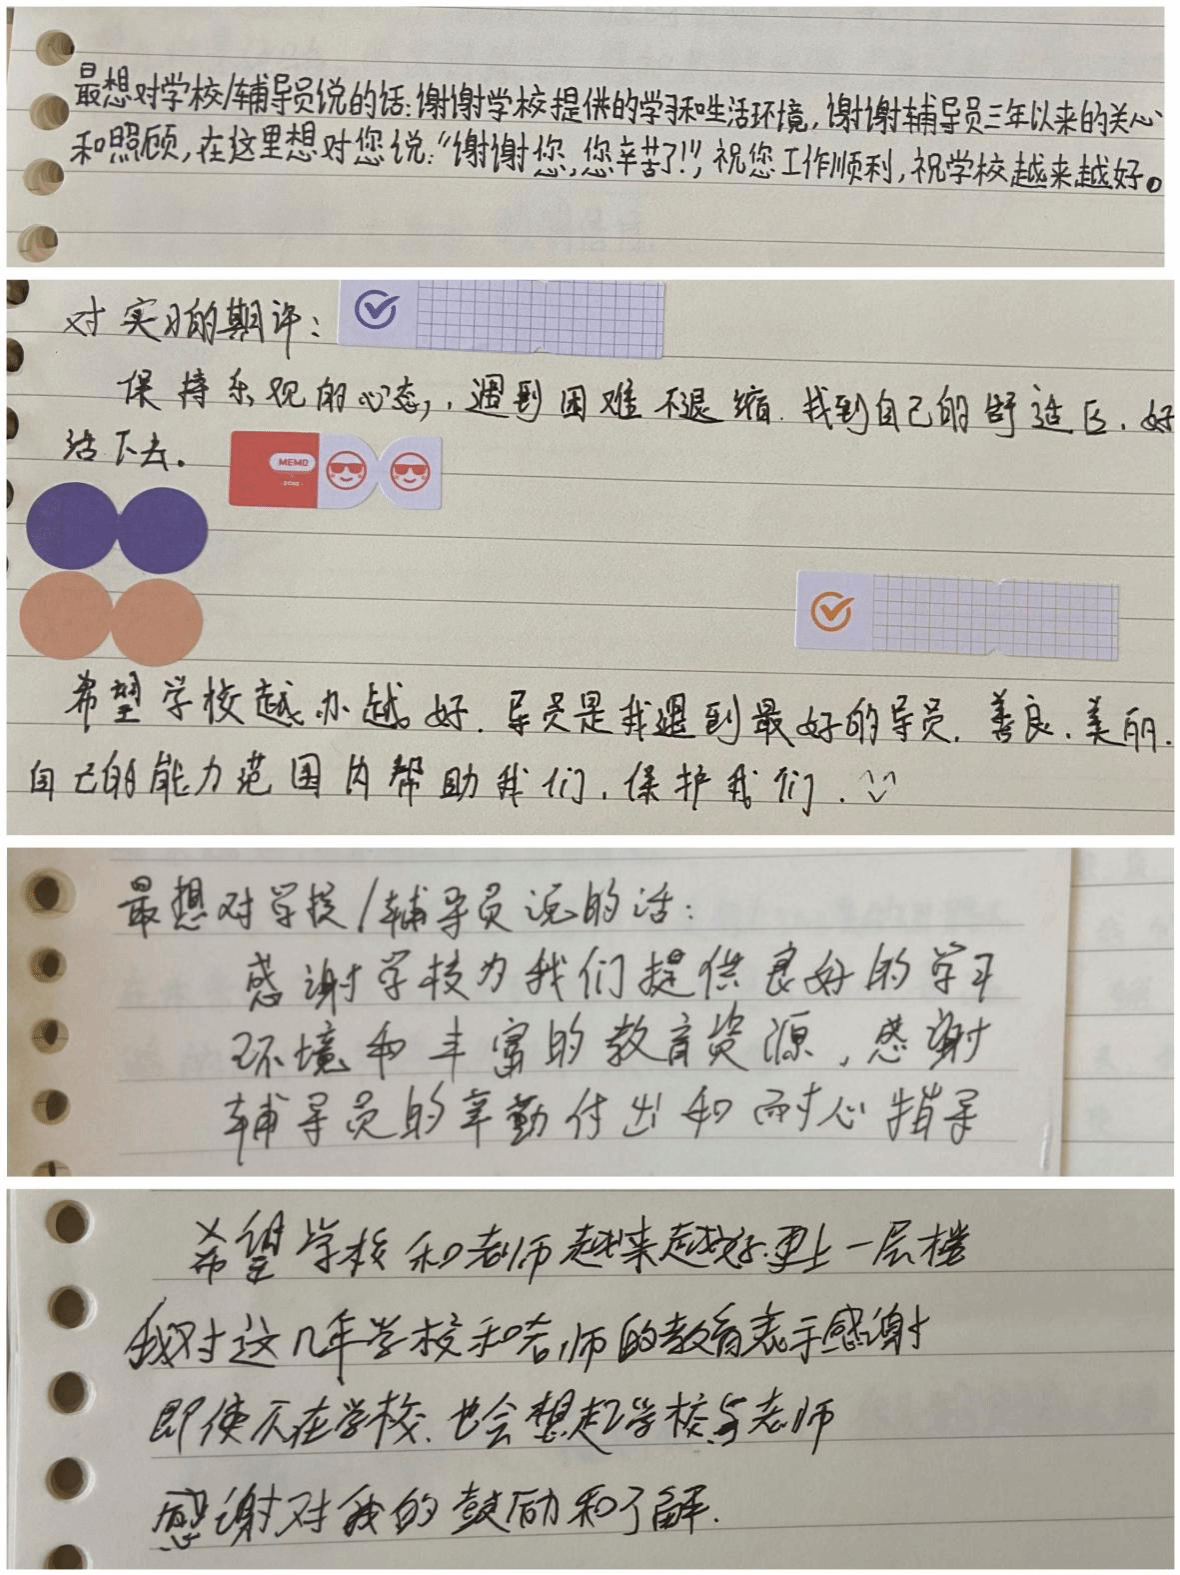 最想对学校/辅导员说的话:谢谢学校提供的学习和生活环境,谢谢辅导员三年以来的关心
和照顾,在这里想对您说:“谢谢您,您辛苦了!”,祝您工作顺利,祝学校越来越好。
对实习的期许:
保持乐观的心态,,遇到困难不退缩.找到自己的舒适区.好
活下去.
MEMO
- DONE -
希望学校越办越好.导员是我遇到最好的导员.善良.美丽.
自己的能力范围内帮助我们.保护我们.
最想对学校/辅导员说的话:
感谢学校为我们提供良好的学习
环境和丰富的教育资源,感谢
辅导员的辛勤付出和耐心指导
希望学校和老师越来越好.更上一层楼
我对这几年学校和老师的教育表示感谢
即使不在学校.也会想起学校与老师
感谢对我的鼓励和了解.